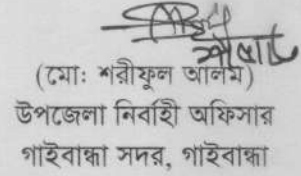 (মো: শরীফুল আলম)
উপজেলা নির্বাহী অফিসার
গাইবান্ধা সদর, গাইবান্ধা